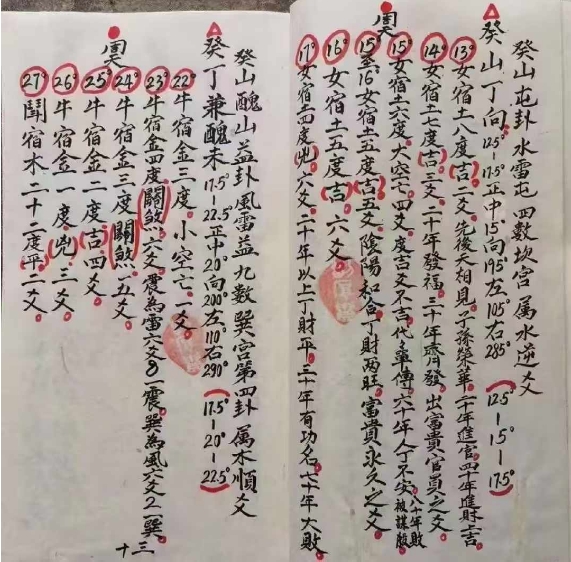 癸山屯卦水雷屯四數坎宮属水逆爻
癸山丁向12.5°-17.5°正中15向195°左105°右285°(12.5°-15°-17.5°)
13°女宿土八度(吉)二爻。先後天相見。子孫榮華。二十年進官。四十年進財上吉。
14°女宿土七度(吉)三爻。二十年發福。三十年齊發。出富貴官員之爻。
15°女宿土六度。大空亡。四爻。度吉爻不吉。代々單傳。六十年人丁不安。八十年敗
15°至16°女宿土五度(吉)五爻。陰陽和合丁財两旺。富貴永久之爻。
16°女宿土五度(吉)。六爻。
17°女宿土四度(兇)。六爻。二十年以上丁財平。三十年有功名。六十年大敗
周天
癸山醜山益卦風雷益九數巽宮第四卦属木順爻
癸丁兼醜未17.5°-22.5°正中20°向200°左110°右290°(17.5°-20°-22.5°)
22°牛宿金三度。小空亡。一爻。
23°牛宿金四度(關煞)。六爻。震為雷六爻8一震。巽為風六爻2一巽。
24°牛宿金三度(關煞)。五爻。
25°牛宿金二度(吉)。四爻。
26°牛宿金一度。(兇)。三爻。
27°鬪宿水二十二度(平)。二爻。
周天
十三